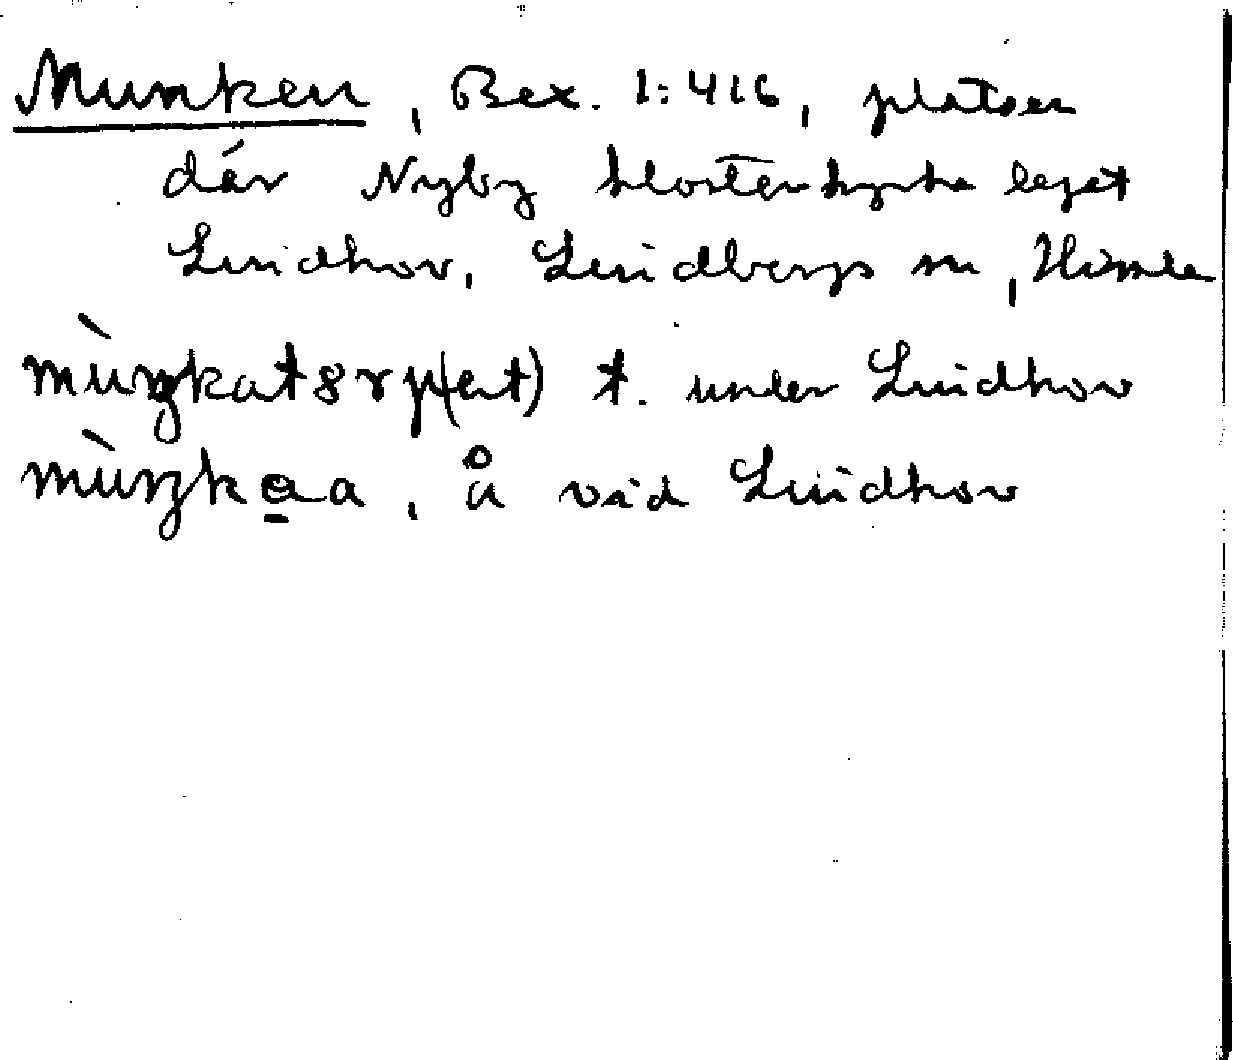 Munken, Bex. 1:416, platsen
där Nyby klosterkyrka legat
Lindhov, Lindbergs sn, Himle
mùŋkatɔrp(et) t. under Lindhov
mùŋka̱a, å vid Lindhov